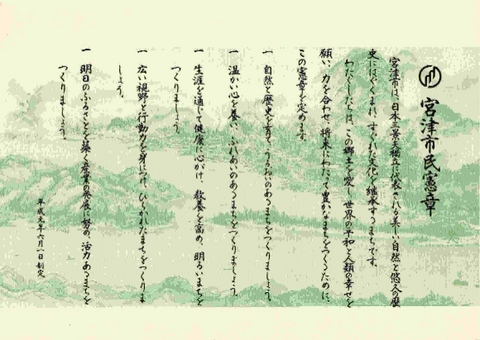 宮津市民憲章
宮津市は、日本三景天橋立に代表される美しい自然と悠久の歴
史にはぐくまれ、すぐれた文化を継承するまちです。
わたくしたちは、この郷土を愛し、世界の平和と人類の幸せを
願い、力を合わせ、将来にわたって豊かなまちをつくるために、
この憲章を定めます。
一 自然と歴史を育て、うるおいのあるまちをつくりましょう。
一 温かい心を養い、ふれあいのあるまちをつくりましょう。
一 生涯を通じて健康に心がけ、教養を高め、明るいまちを
つくりましょう。
一 広い視野と行動力を身につけ、ひらかれたまちをつくりま
しょう。
一 明日のふるさとを築く産業の発展に努め、活力あるまちを
つくりましょう。
平成五年六月一日制定